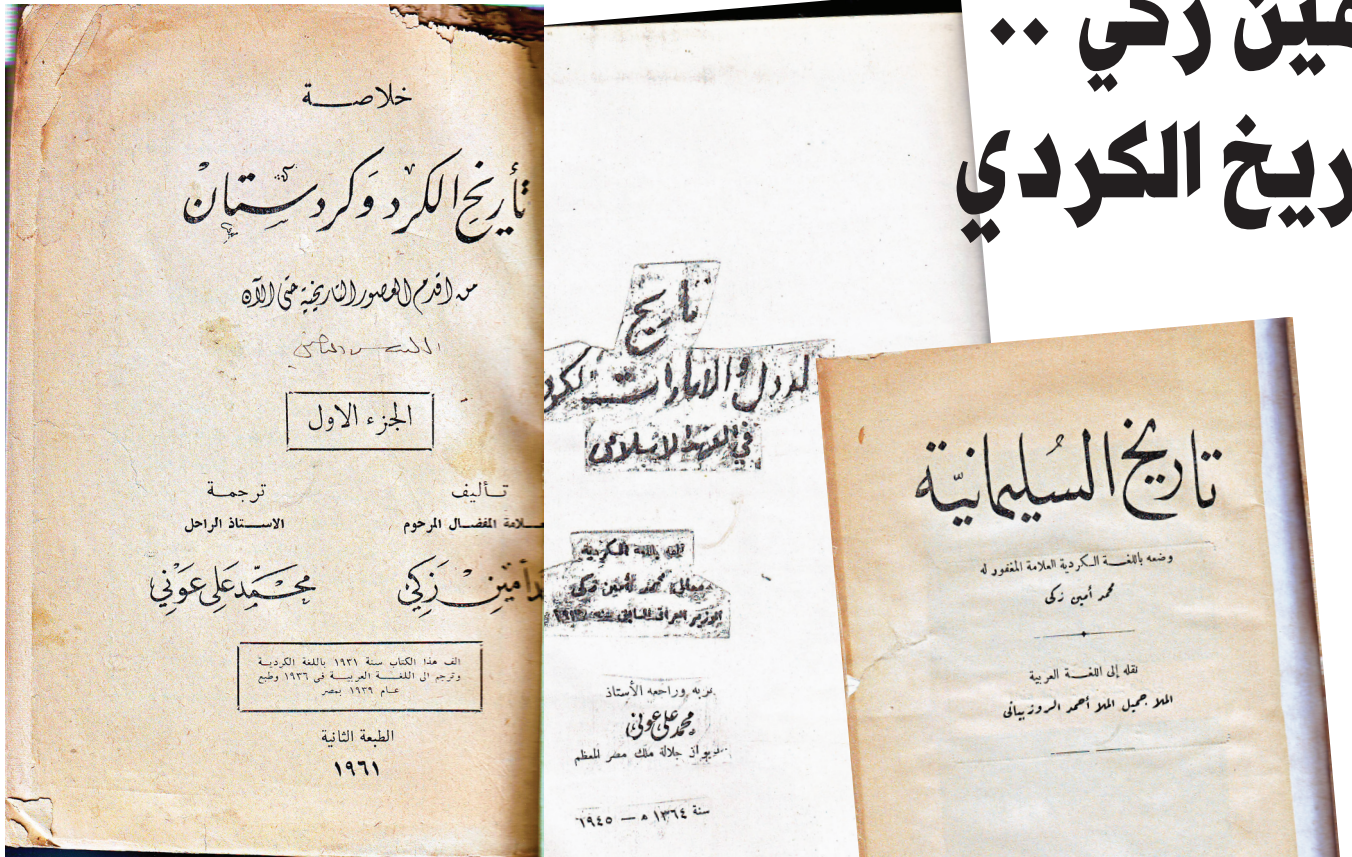 مين زكي ..
ريخ الكردي
خلاصـــة
تأريخ الكرد وكردستان
من اقدم العصور التاريخية حتى الآن
الجزء الاول
تــأليف
ـلامة المفضــال المرحوم
ـد أمين زكي
ترجمة
الاســـتاذ الراحل
محمد علي عوني
الف هذا الكتاب سنة ١٩٣١ باللغة الكرديــة
وترجم الى اللغــــة العربيــــة في ١٩٣٦ وطبع
عــام ١٩٣٩ بمصر
الطبعة الثانية
١٩٦١
تاريخ
الدول والامارات الكرد
في العهد الاسلامي
الفه باللغة الكردية
معالي محمد أمين زكي
الوزير العراقي السابق سنة
عربه وراجعه الأستاذ
محمد علي عوني
بديوان جلالة ملك مصر المعظم
سنة ١٣٦٤ ه — ١٩٤٥
تاريخ السُليمانيّة
وضعه باللغـــة الــكردية العلامة المغفور له
محمد أمين زكى
نقله إلى اللغـــة العربية
الملا جميل الملا أحمد الروزبيانى